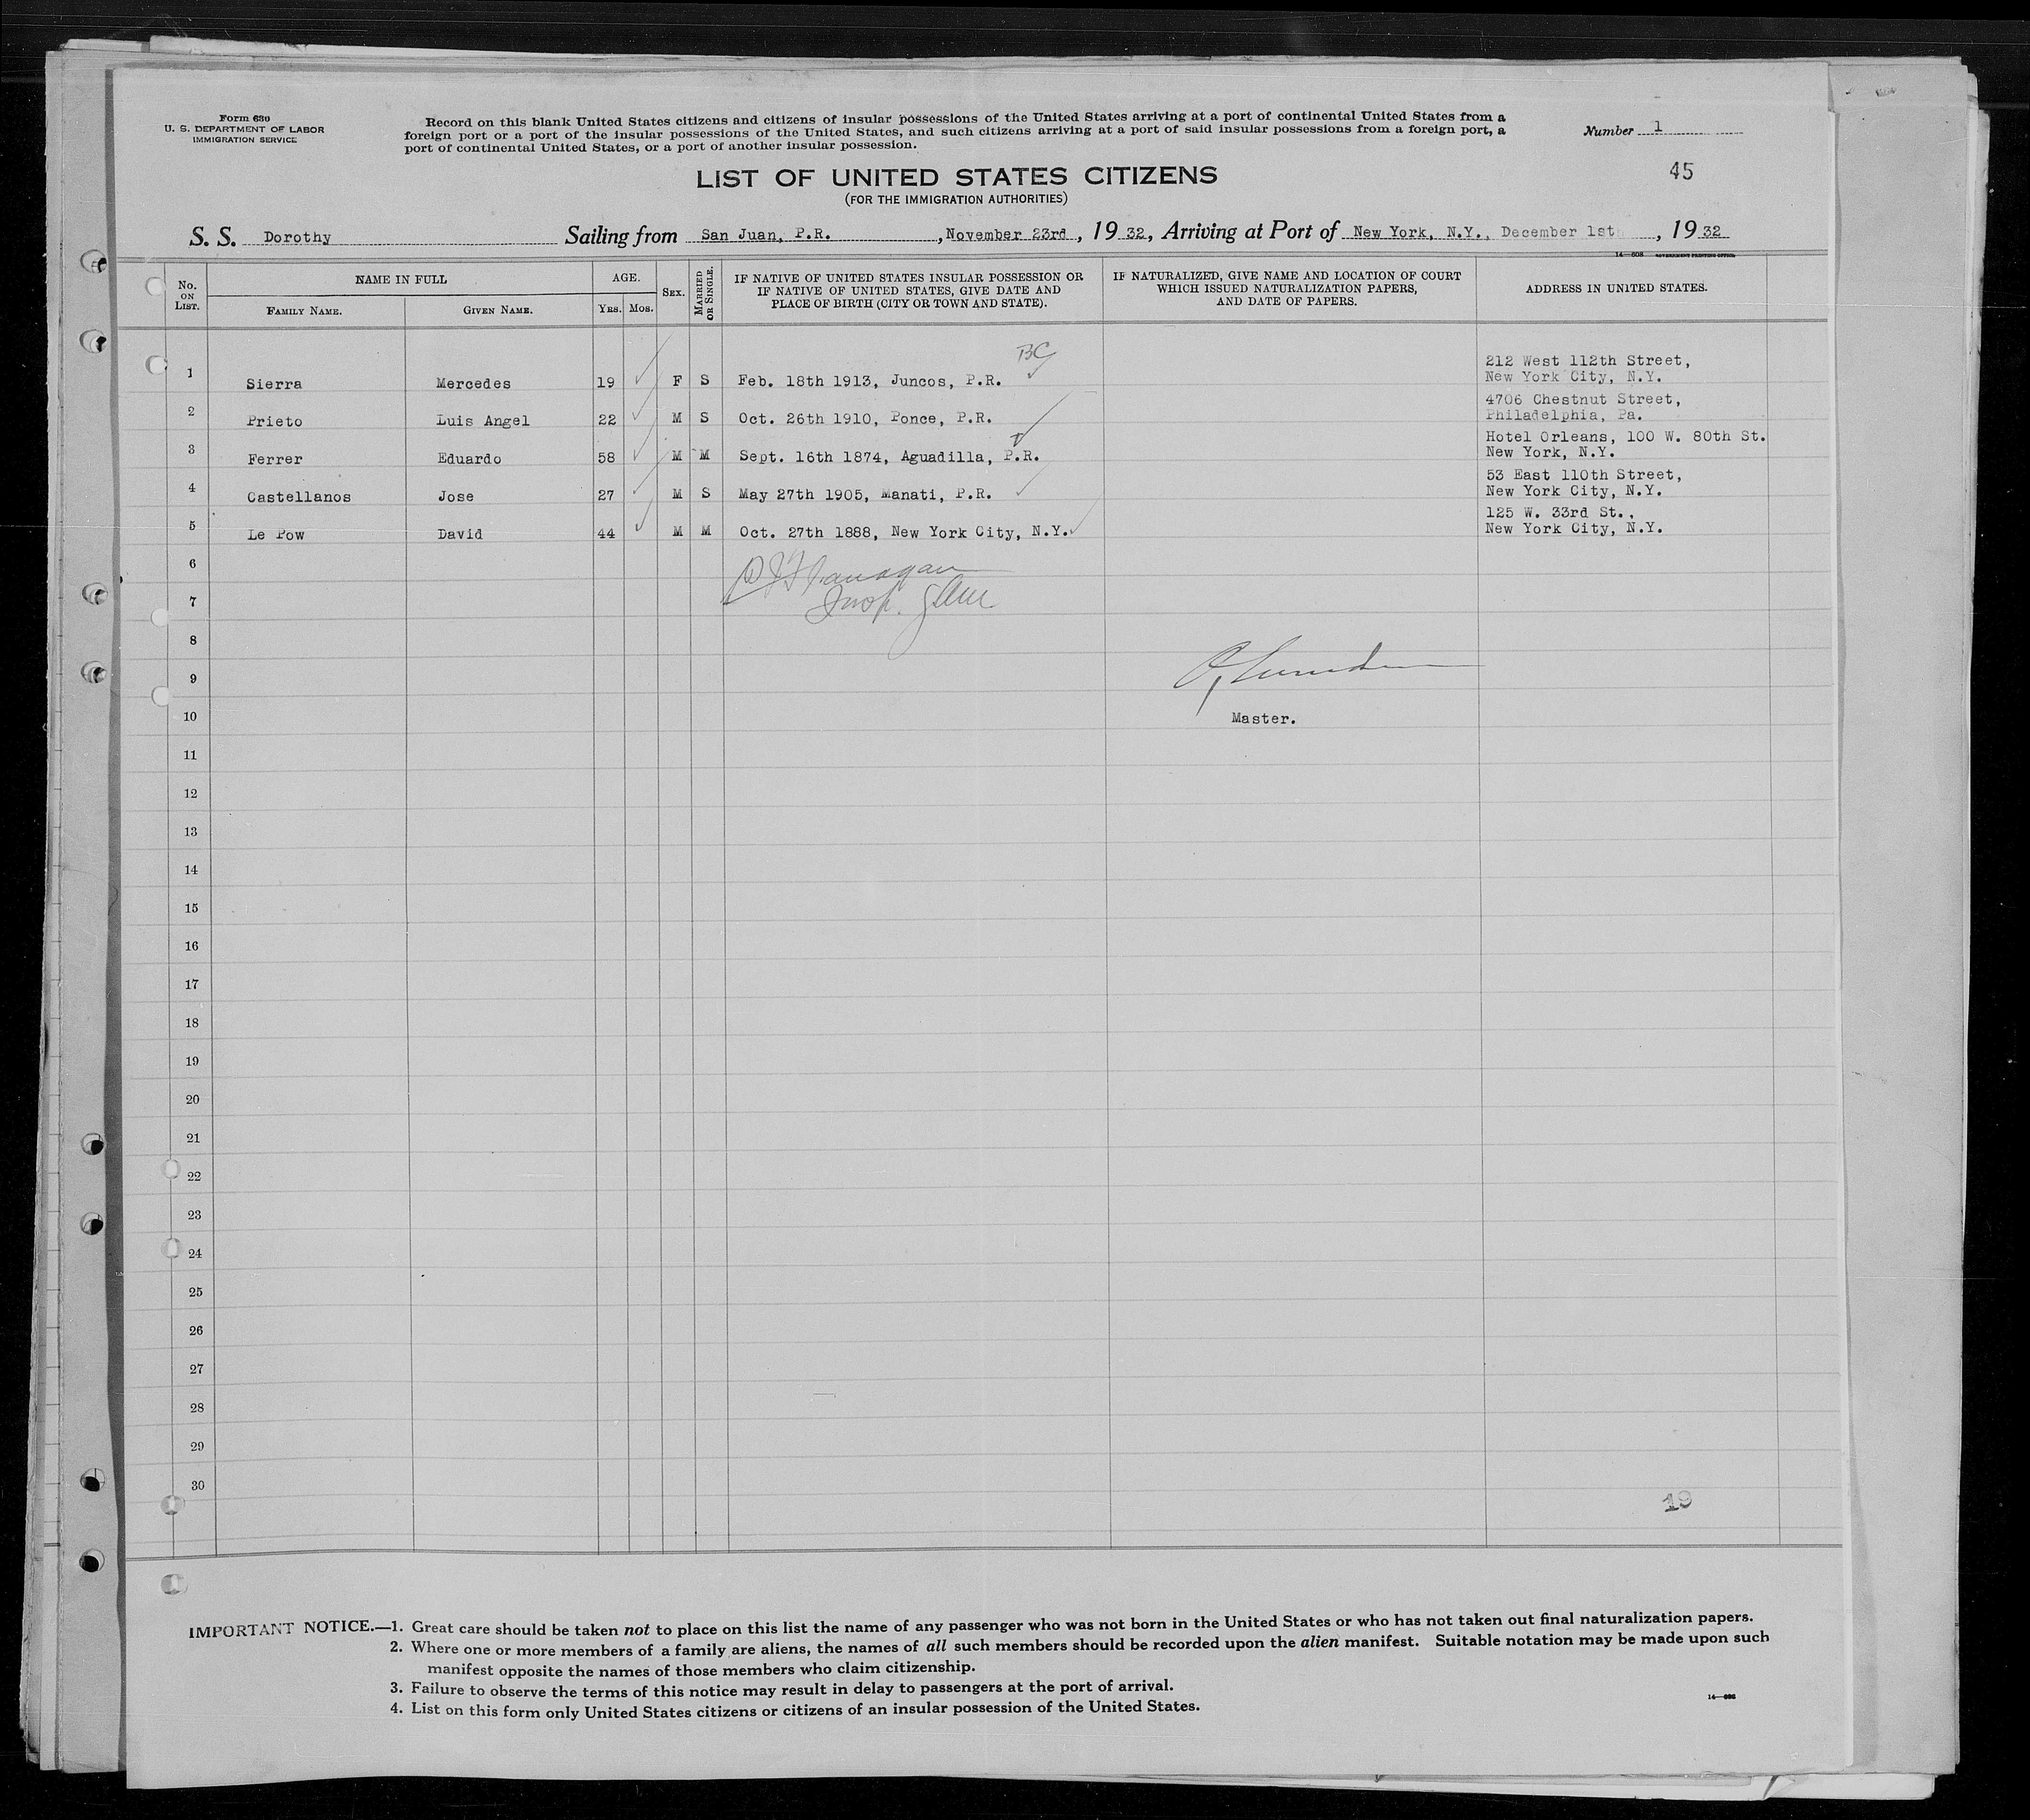 Form 630
U. S. DEPARTMENT OF LABOR
IMMIGRATION SERVICE
Record on this blank United States citizens and citizens of insular possessions of the United States arriving at a port of continental United States from a
foreign port or a port of the insular possessions of the United States, and such citizens arriving at a port of said insular possessions from a foreign port, a
port of continental United States, or a port of another insular possession.
Number 1
45
LIST OF UNITED STATES CITIZENS
(FOR THE IMMIGRATION AUTHORITIES)
S. S. Dorothy Sailing from San Juan, P.R. , November 23rd , 1932, Arriving at Port of New York, N.Y., December 1st , 1932
No. ON LIST. NAME IN FULL FAMILY NAME. GIVEN NAME. AGE. YRS. MOS. SEX. MARRIED OR SINGLE. IF NATIVE OF UNITED STATES INSULAR POSSESSION OR IF NATIVE OF UNITED STATES, GIVE DATE AND PLACE OF BIRTH (CITY OR TOWN AND STATE). IF NATURALIZED, GIVE NAME AND LOCATION OF COURT WHICH ISSUED NATURALIZATION PAPERS, AND DATE OF PAPERS. ADDRESS IN UNITED STATES.
BC
1 Sierra Mercedes 19 F S Feb. 18th 1913, Juncos, P.R. 212 West 112th Street, New York City, N.Y.
2 Prieto Luis Angel 22 M S Oct. 26th 1910, Ponce, P.R. 4706 Chestnut Street, Philadelphia, Pa.
3 Ferrer Eduardo 58 M M Sept. 16th 1874, Aguadilla, P.R. Hotel Orleans, 100 W. 80th St. New York, N.Y.
4 Castellanos Jose 27 M S May 27th 1905, Manati, P.R. 53 East 110th Street, New York City, N.Y.
5 Le Pow David 44 M M Oct. 27th 1888, New York City, N.Y. 125 W. 33rd St., New York City, N.Y.
6 Flanagan
7 Insp.
8
9
10 Master.
11
12
13
14
15
16
17
18
19
20
21
22
23
24
25
26
27
28
29
30
19
IMPORTANT NOTICE.—1. Great care should be taken not to place on this list the name of any passenger who was not born in the United States or who has not taken out final naturalization papers.
2. Where one or more members of a family are aliens, the names of all such members should be recorded upon the alien manifest. Suitable notation may be made upon such
manifest opposite the names of those members who claim citizenship.
3. Failure to observe the terms of this notice may result in delay to passengers at the port of arrival.
4. List on this form only United States citizens or citizens of an insular possession of the United States.